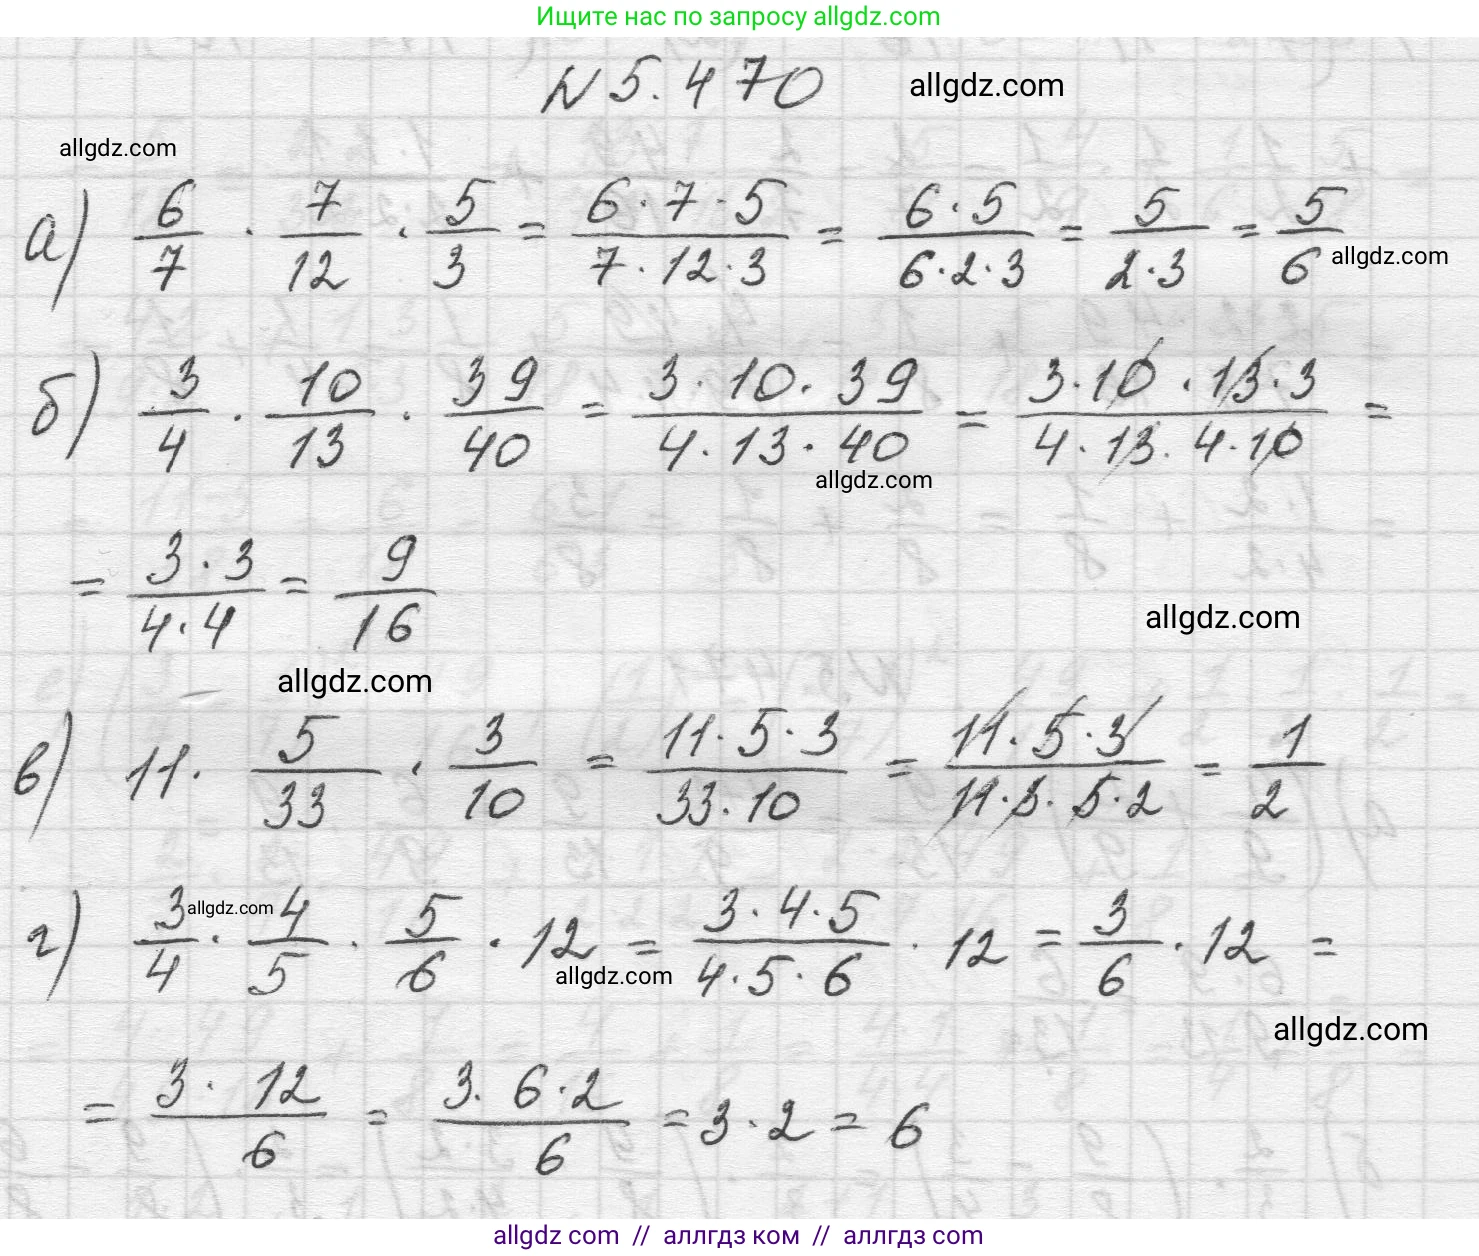 Ищите нас по запросу allgdz.com
N 5.470 allgdz.com
allgdz.com
а) 6/7 · 7/12 · 5/3 = 6·7·5/7·12·3 = 6·5/6·2·3 = 5/2·3 = 5/6 allgdz.com
б) 3/4 · 10/13 · 39/40 = 3·10·39/4·13·40 = 3·10·13·3/4·13·4·10 =
allgdz.com
= 3·3/4·4 = 9/16
allgdz.com
allgdz.com
в) 11 · 5/33 · 3/10 = 11·5·3/33·10 = 11·5·3/11·3·5·2 = 1/2
г) 3/4 · 4/5 · 5/6 · 12 = 3·4·5/4·5·6 · 12 = 3/6 · 12 =
allgdz.com
allgdz.com
allgdz.com
= 3·12/6 = 3·6·2/6 = 3·2 = 6
allgdz.com // аллгдз ком // аллгдз.com